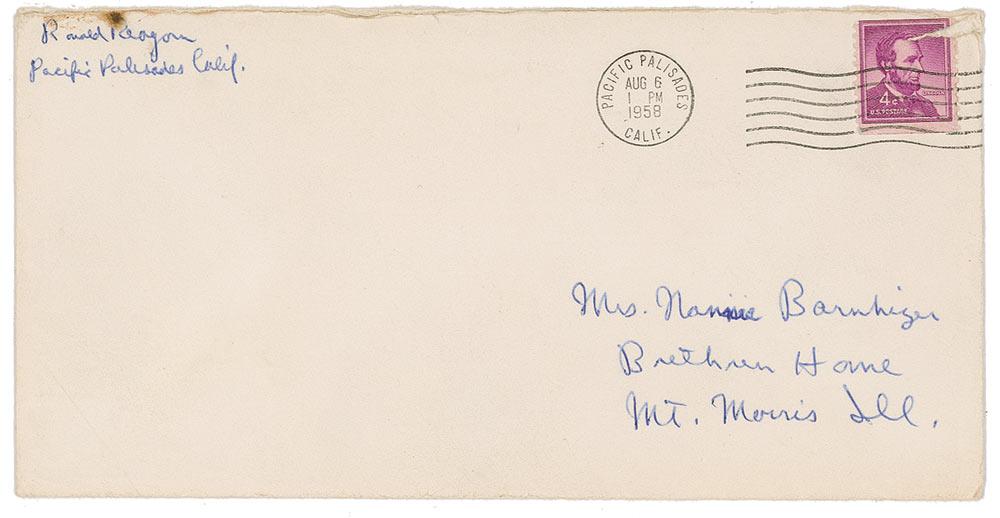 Ronald Reagan
Pacific Palisades Calif.
PACIFIC PALISADES
AUG 6
1 PM
1958
CALIF.
LINCOLN
4¢
U.S. POSTAGE
Mrs. Nannie Barnhizer
Brethren Home
Mt. Morris Ill.